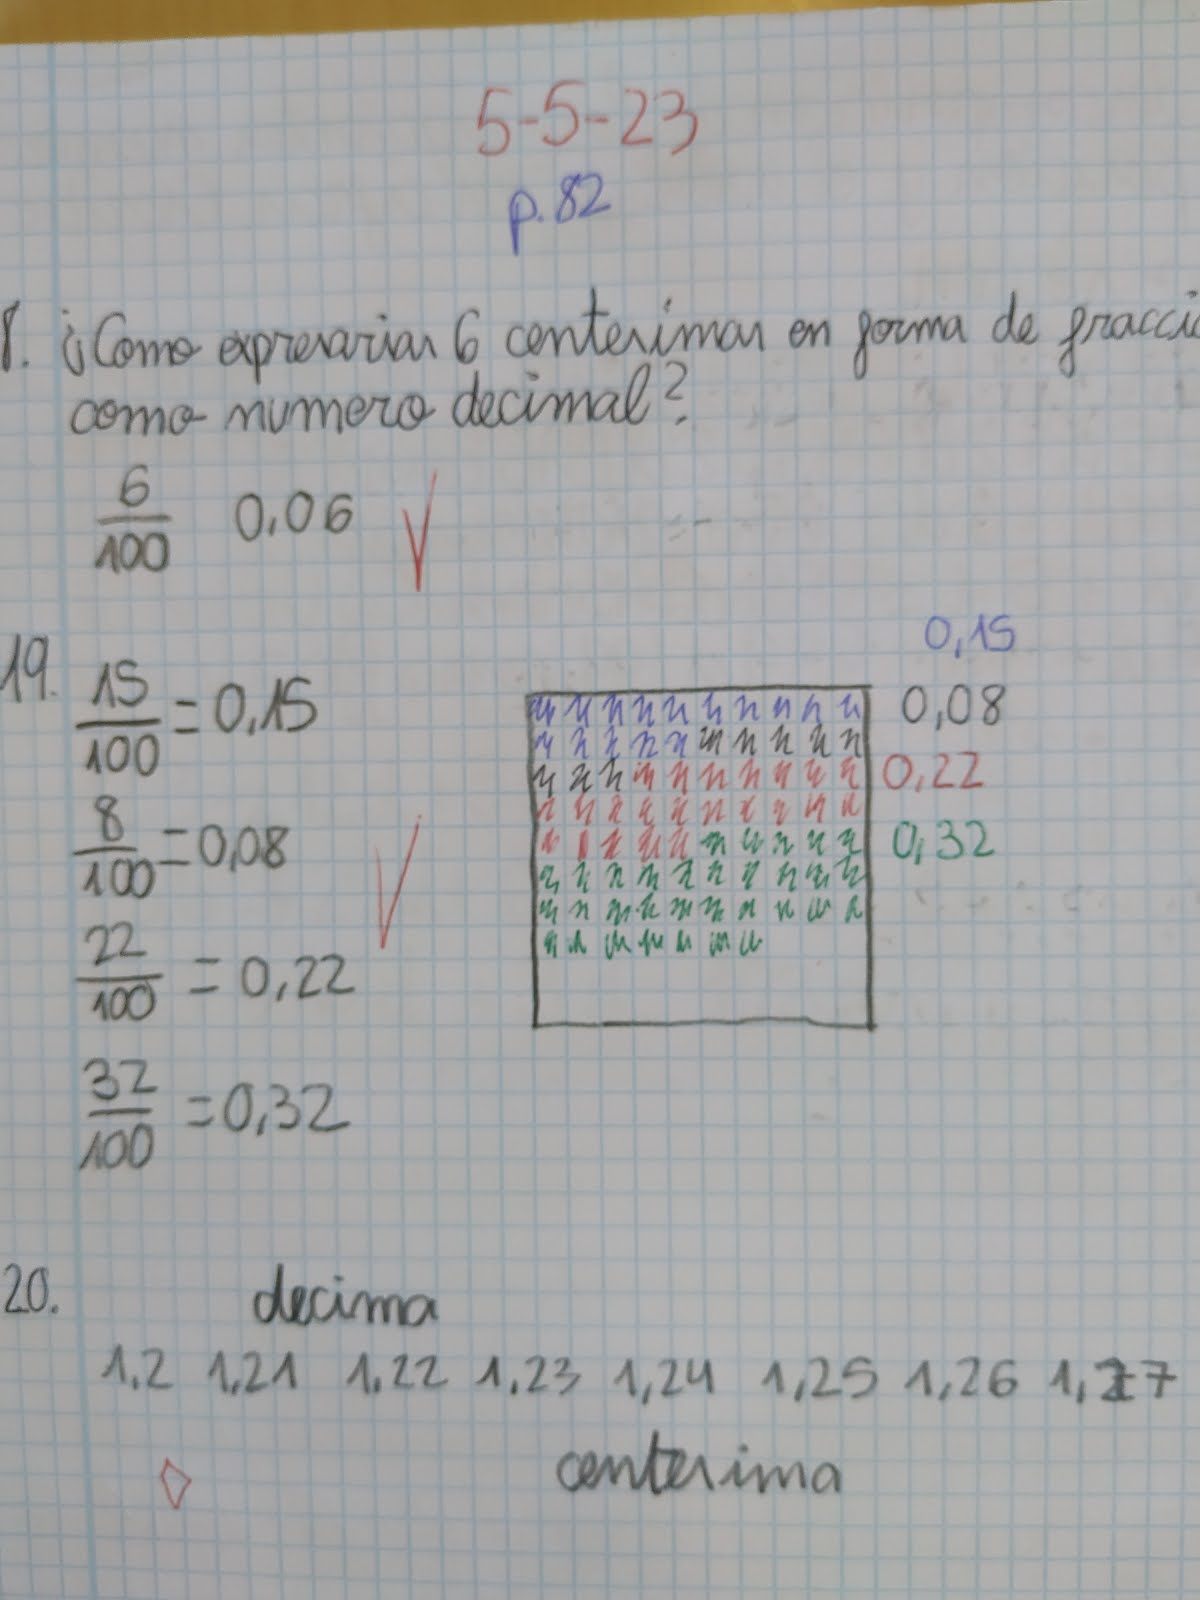 5-5-23
p.82
8. ¿Como expresarias 6 centesimas en forma de fracci
como numero decimal?
6/100 0,06
19. 15/100 = 0,15
8/100 = 0,08
22/100 = 0,22
32/100 = 0,32
0,15
0,08
0,22
0,32
20. decima
1,2 1,21 1,22 1,23 1,24 1,25 1,26 1,27
centesima